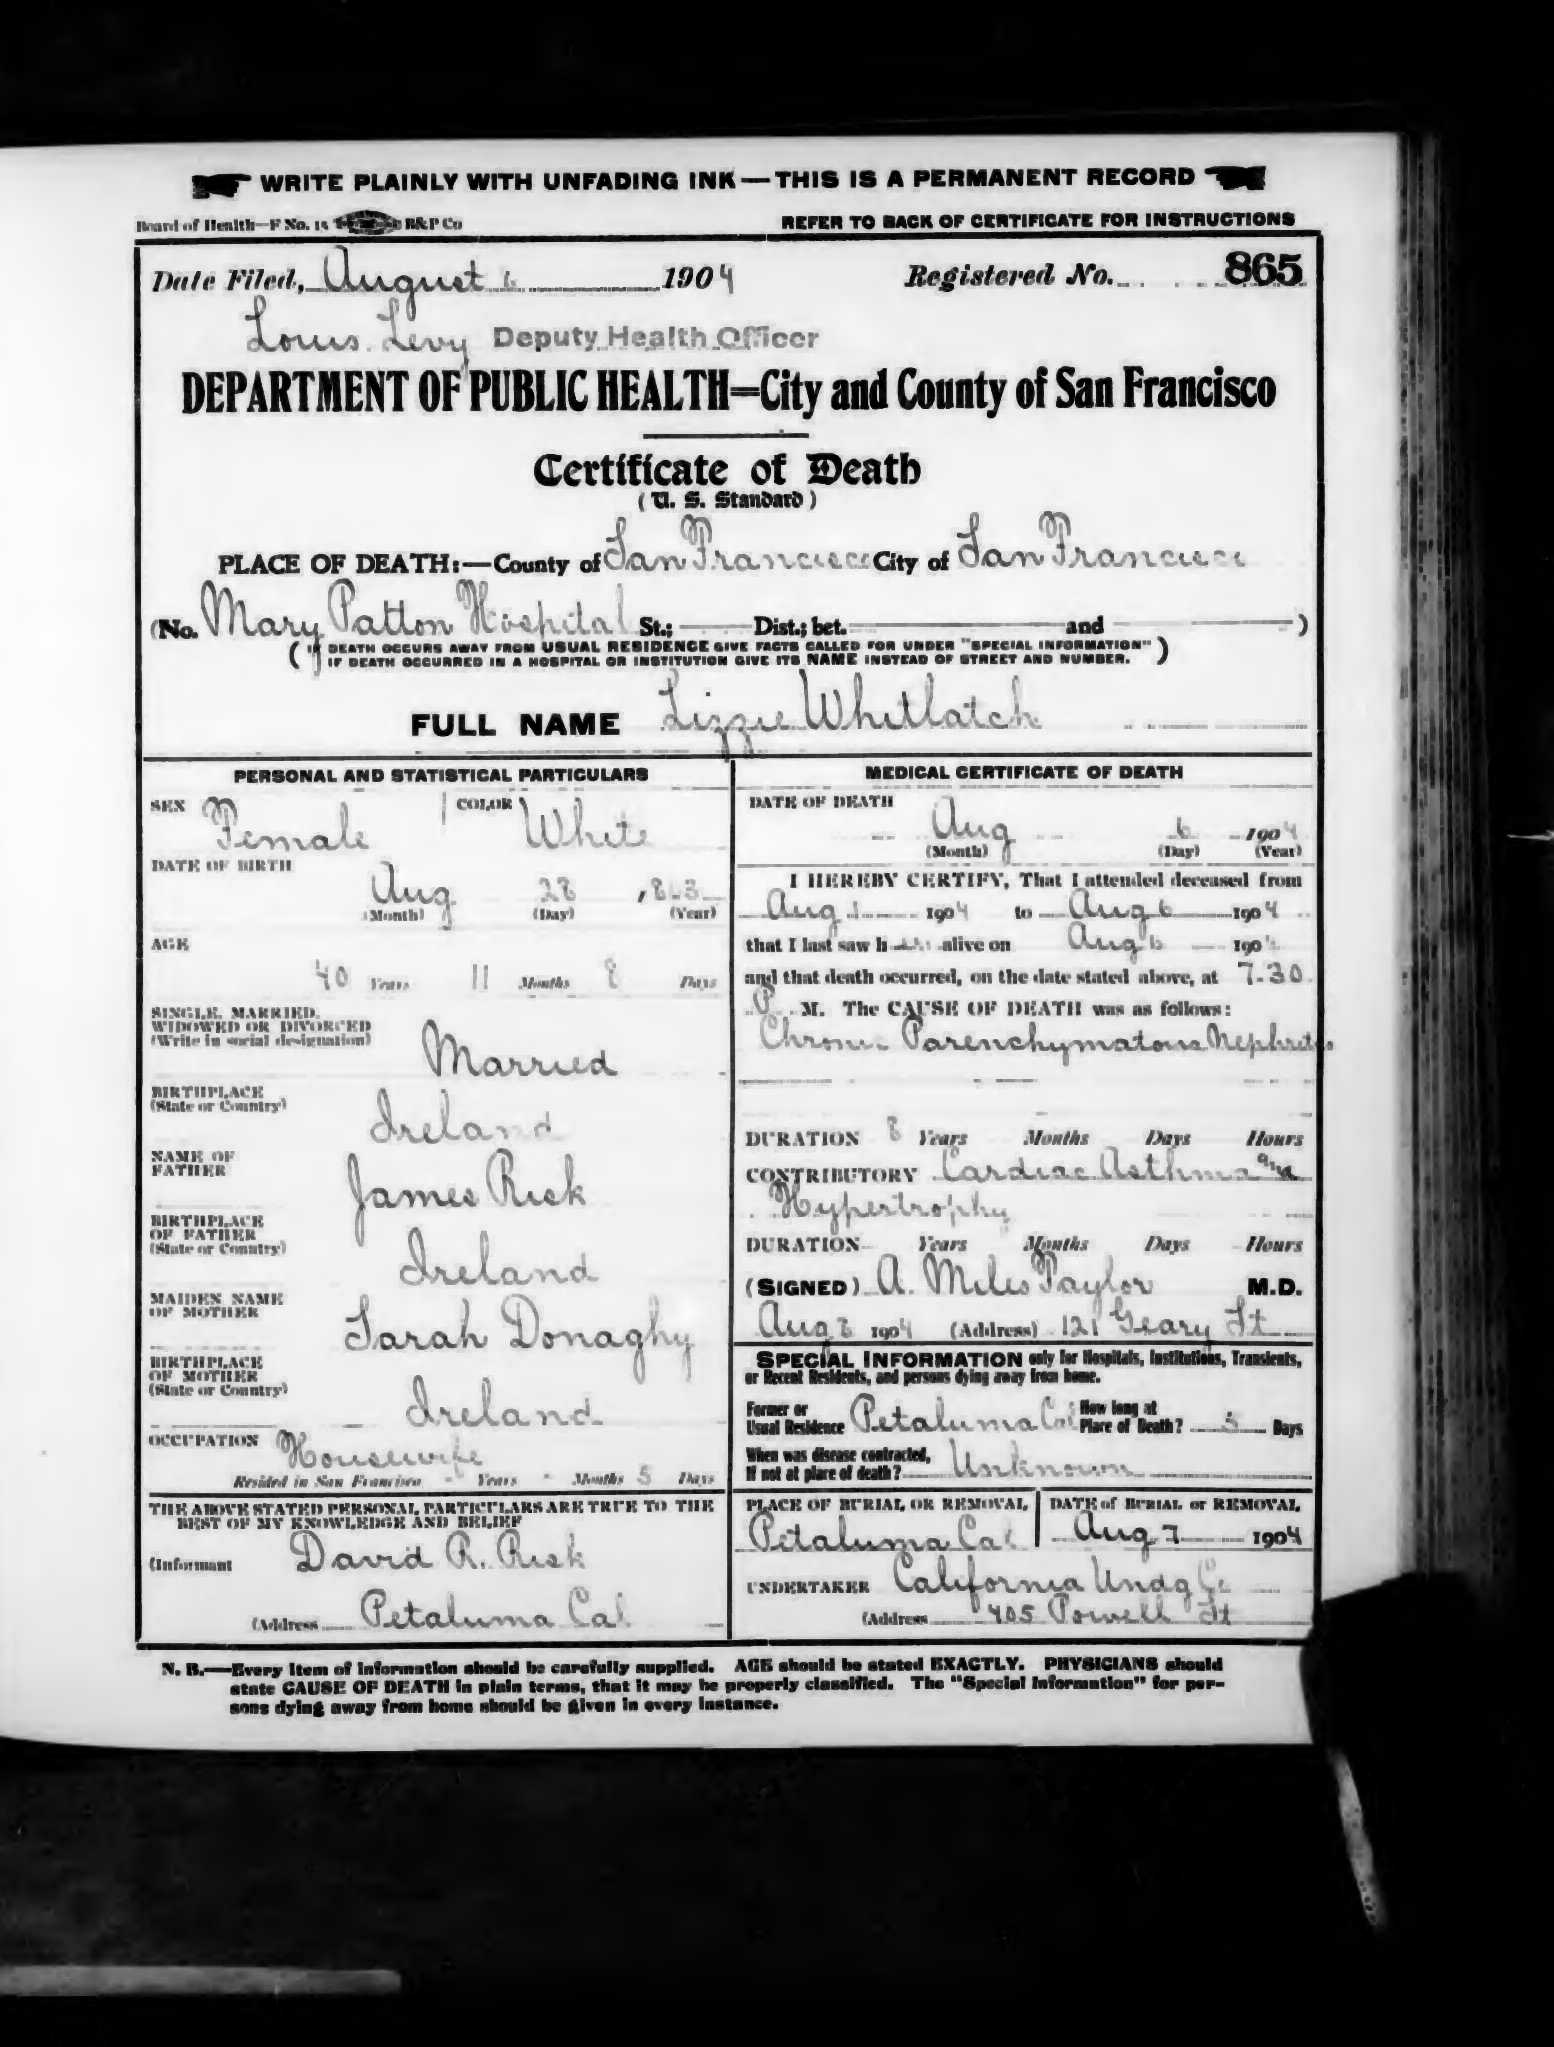 WRITE PLAINLY WITH UNFADING INK — THIS IS A PERMANENT RECORD
Board of Health—F No. 15 B&P Co REFER TO BACK OF CERTIFICATE FOR INSTRUCTIONS
Date Filed, August 6 1904 Registered No. 865
Louis Levy Deputy Health Officer
DEPARTMENT OF PUBLIC HEALTH=City and County of San Francisco
Certificate of Death
(U. S. Standard)
PLACE OF DEATH:—County of San Francisco City of San Francisco
(No. Mary Patton Hospital St.; Dist.; bet. and )
( IF DEATH OCCURS AWAY FROM USUAL RESIDENCE GIVE FACTS CALLED FOR UNDER "SPECIAL INFORMATION" )
IF DEATH OCCURRED IN A HOSPITAL OR INSTITUTION GIVE ITS NAME INSTEAD OF STREET AND NUMBER.
FULL NAME Lizzie Whitlatch
PERSONAL AND STATISTICAL PARTICULARS
SEX Female COLOR White
DATE OF BIRTH
Aug 28
(Month) (Day) (Year)
AGE
40 Years 11 Months 8 Days
SINGLE, MARRIED,
WIDOWED OR DIVORCED
(Write in social designation)
Married
BIRTHPLACE
(State or Country)
Ireland
NAME OF
FATHER
James Risk
BIRTHPLACE
OF FATHER
(State or Country)
Ireland
MAIDEN NAME
OF MOTHER
Sarah Donaghy
BIRTHPLACE
OF MOTHER
(State or Country)
Ireland
OCCUPATION Housewife
Resided in San Francisco - Years - Months 5 Days
THE ABOVE STATED PERSONAL PARTICULARS ARE TRUE TO THE
BEST OF MY KNOWLEDGE AND BELIEF
(Informant David R. Risk
(Address Petaluma Cal
MEDICAL CERTIFICATE OF DEATH
DATE OF DEATH
Aug 6 1904
(Month) (Day) (Year)
I HEREBY CERTIFY, That I attended deceased from
Aug 1 1904 to Aug 6 1904
that I last saw her alive on Aug 6 1904
and that death occurred, on the date stated above, at 7.30
P M. The CAUSE OF DEATH was as follows:
Chronic Parenchymatous Nephritis
DURATION 8 Years Months Days Hours
CONTRIBUTORY Cardiac Asthma and
Hypertrophy
DURATION Years Months Days Hours
(SIGNED) A. Miles Taylor M.D.
Aug 8 1904 (Address) 121 Geary St
SPECIAL INFORMATION only for Hospitals, Institutions, Transients,
or Recent Residents, and persons dying away from home.
Former or
Usual Residence Petaluma Cal
How long at
Place of Death? 5 Days
When was disease contracted,
If not at place of death? Unknown
PLACE OF BURIAL OR REMOVAL
Petaluma Cal
DATE of BURIAL or REMOVAL
Aug 7 1904
UNDERTAKER California Undg Co
(Address 405 Powell St
N. B.—Every item of information should be carefully supplied. AGE should be stated EXACTLY. PHYSICIANS should
state CAUSE OF DEATH in plain terms, that it may be properly classified. The "Special Information" for per-
sons dying away from home should be given in every instance.